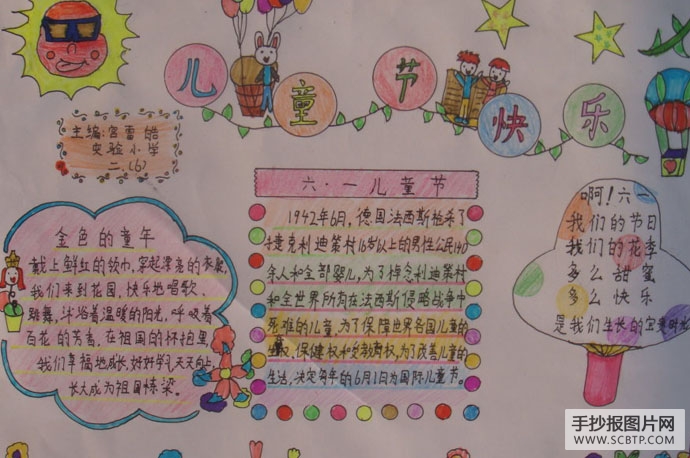 儿童节快乐
主编:宫雷皓
实验小学
二.(6)
金色的童年
戴上鲜红的领巾,穿起漂亮的衣裳,
我们来到花园,快乐地唱歌
跳舞,沐浴着温暖的阳光,呼吸着
百花的芳香,在祖国的怀抱里,
我们幸福地成长,好好学习天天向上
长大成为祖国栋梁。
六·一儿童节
1942年6月,德国法西斯枪杀了
捷克利迪策村16岁以上的男性公民140
余人和全部婴儿,为了悼念利迪策村
和全世界所有在法西斯侵略战争中
死难的儿童,为了保障世界各国儿童的
权,保健权和受教育权,为了改善儿童的
生活,决定每年的6月1日为国际儿童节。
啊!六一
我们的节日
我们的花季
多么甜蜜
多么快乐
是我们生长的宝贵时光
手抄报图片网
WWW.SCBTP.COM